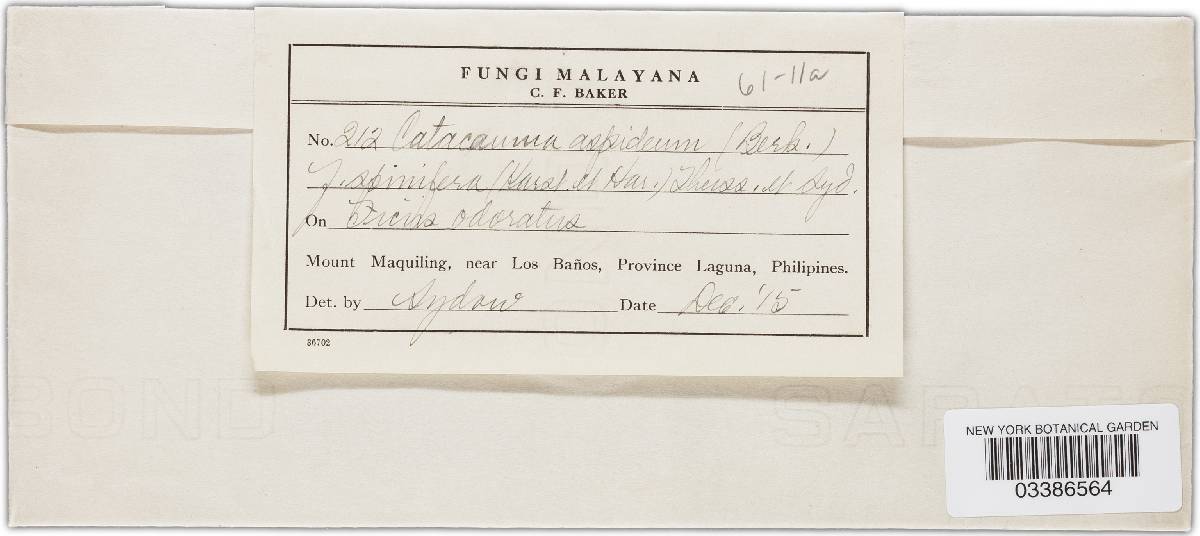 FUNGI MALAYANA
61-11a
C. F. BAKER
No. 212 Catacauma aspideum (Berk.)
f. spinifera (Karst. et Har.) Theiss. et Syd.
On Ficus odoratus
Mount Maquiling, near Los Baños, Province Laguna, Philipines.
Det. by Sydow Date Dec. '15
36702
BOND
SARATO
NEW YORK BOTANICAL GARDEN
03386564